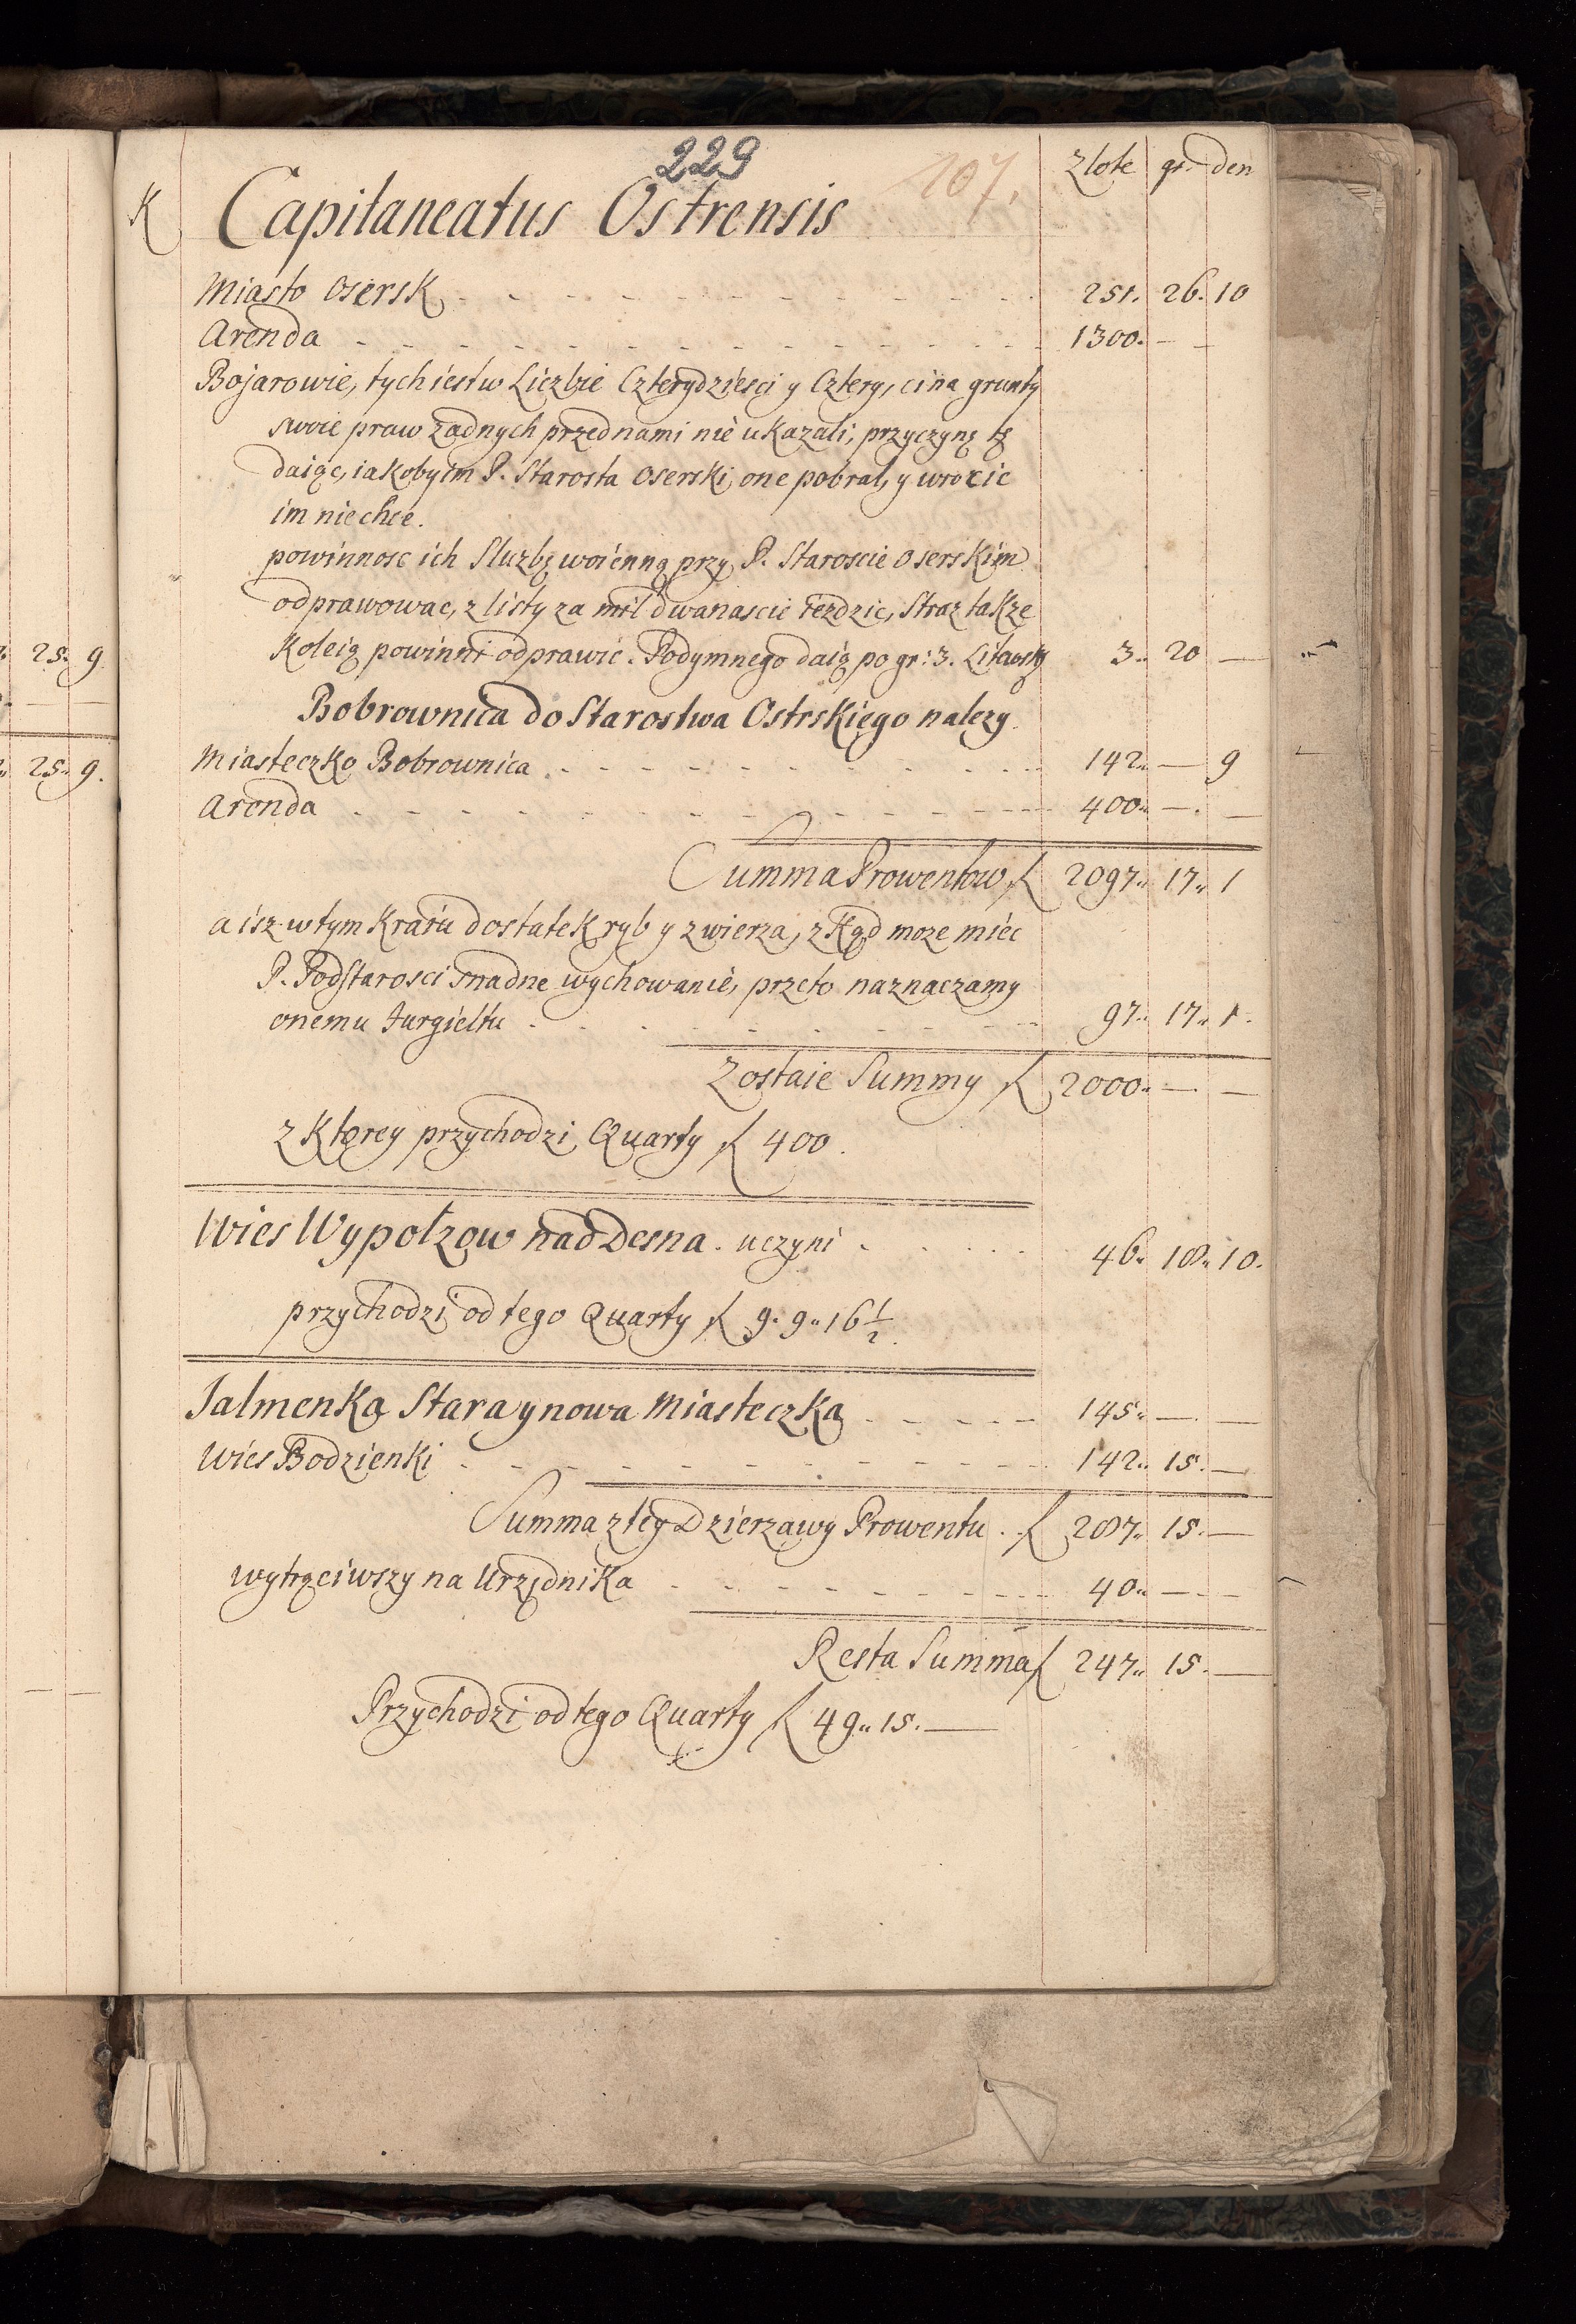 229
107.
zlote gr. den
K Capitaneatus Ostrensis
Miasto Osersk - - - 251. 26. 10
Arenda - - - 1300. — —
Bojarowie, tych iest w Liczbie Czterydziesci y Cztery, ci na grunty
swoie praw zadnych przed nami nie ukazali, przyczynę tę
daiąc, iakoby im P. Starosta Oserski one pobrał, y wrocic
im niechce.
powinnosc ich Sluzbę woienną przy P. Staroscie Oserskim
odprawowac, z listy za mil dwanascie iezdzic, Straz takze
Koleią powinni odprawic. Podymnego daią po gr: 3. Litewsky 3.. 20 —
Bobrownica do Starostwa Ostrskiego nalezy.
Miasteczko Bobrownica - - - 142.. — 9
Arenda - - - 400.. —. —
Summa Prowentow f 2097.. 17.. 1
a isz w tym Kraiu dostatek ryb y zwierza, zKąd moze miec
P. Podstarosci snadne wychowanie, przeto naznaczamy
onemu Jurgieltu - - - 97.. 17.. 1.
Zostaie Summy f 2000.. — —
z Ktorey przychodzi Quarty f 400.
Wies Wypolzow nad Desna. uczyni - - - 46.. 18.. 10.
przychodzi od tego Quarty f 9. 9.. 16 1/2
Jalmenka Stara y nowa Miasteczka - - - 145.. — —
Wies Bodzienki - - - 142.. 15. —
Summa z tey Dzierzawy Prowentu. f 287.. 15. —
wytrąciwszy na Urzędnika - - - 40.. — —
Resta Summa f 247.. 15. —
Przychodzi od tego Quarty f 49.. 15. —
25. 9
25.. 9.